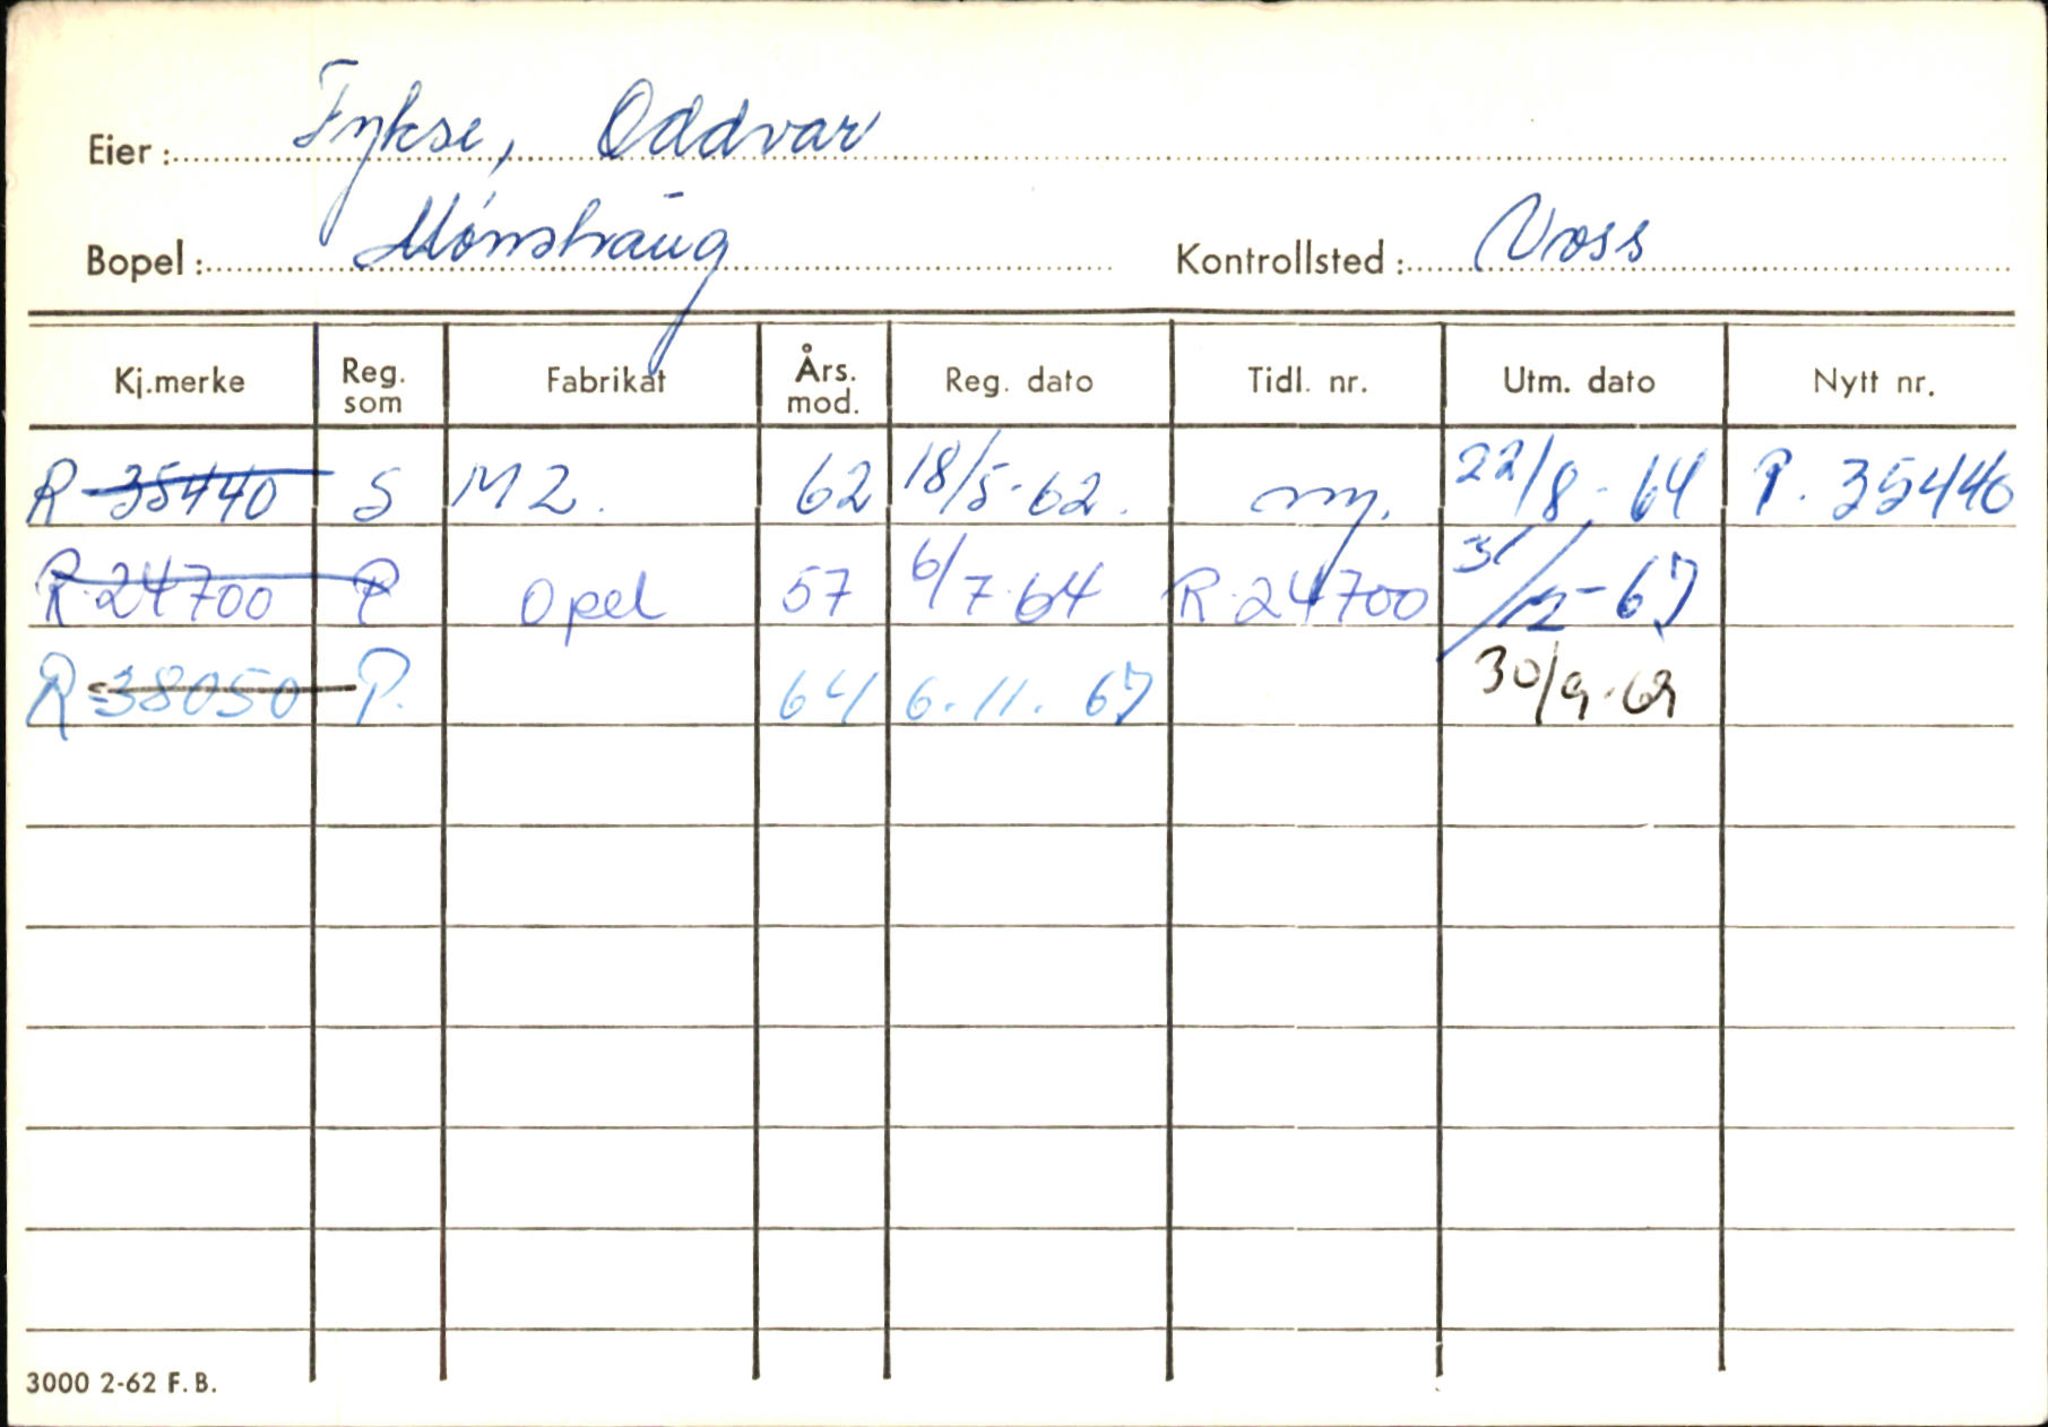 Eier: Fykse, Oddvar
Bopel: Mønshaug Kontrollsted: Voss
Kj.merke Reg. som Fabrikat Års. mod. Reg. dato Tidl. nr. Utm. dato Nytt nr.
R 35440 S MZ. 62 18/5-62. ny. 22/8-64 P. 35440
R 24700 P Opel 57 6/7-64 R-24700 -67
R 38050 P. 64 6.11.67 30/9-69
3000 2-62 F.B.